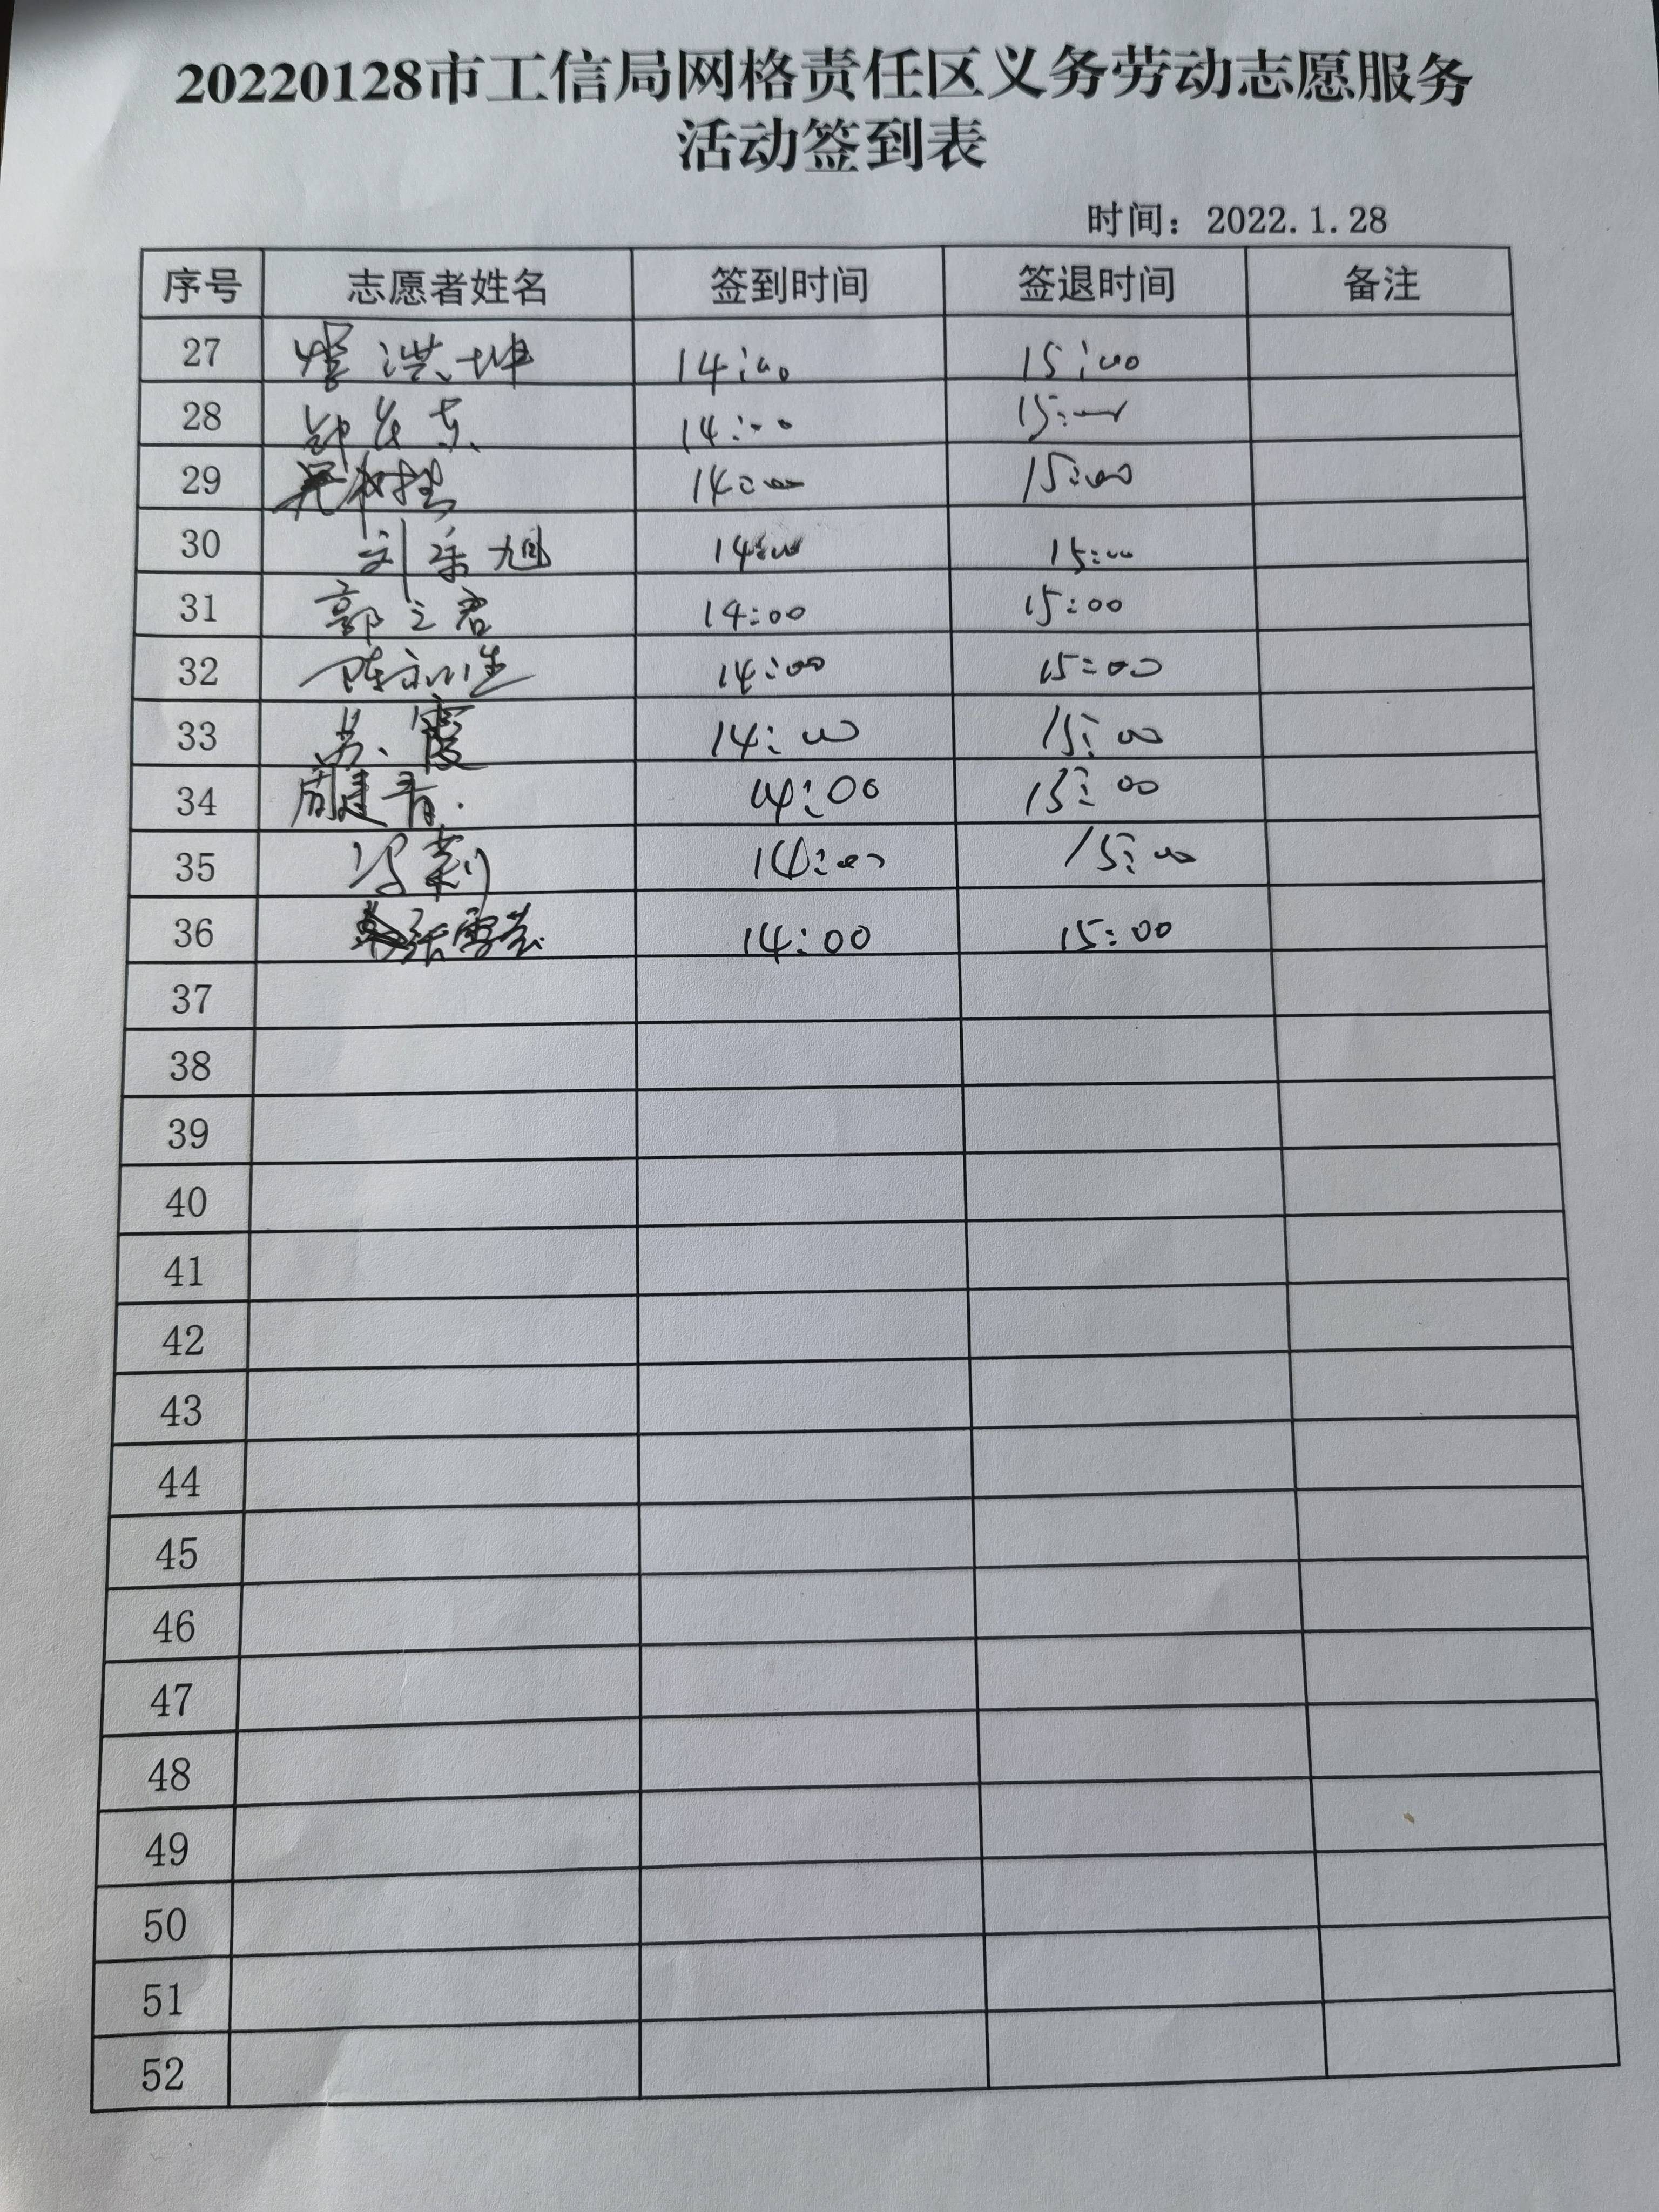 20220128市工信局网格责任区义务劳动志愿服务
活动签到表
时间：2022.1.28
序号 志愿者姓名 签到时间 签退时间 备注
27 洪坤 14:00 15:00
28 14:00 15:00
29 14:00 15:00
30 刘 旭 14:00 15:00
31 郭立君 14:00 15:00
32 陈 14:00 15:00
33 苏霞 14:00 15:00
34 周建青 14:00 15:00
35 冯莉 14:00 15:00
36 张雪 14:00 15:00
37
38
39
40
41
42
43
44
45
46
47
48
49
50
51
52